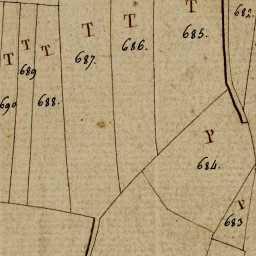 682.
T
685.
T
686.
T
687.
T
688.
T
689
T
690
P
684.
P
683